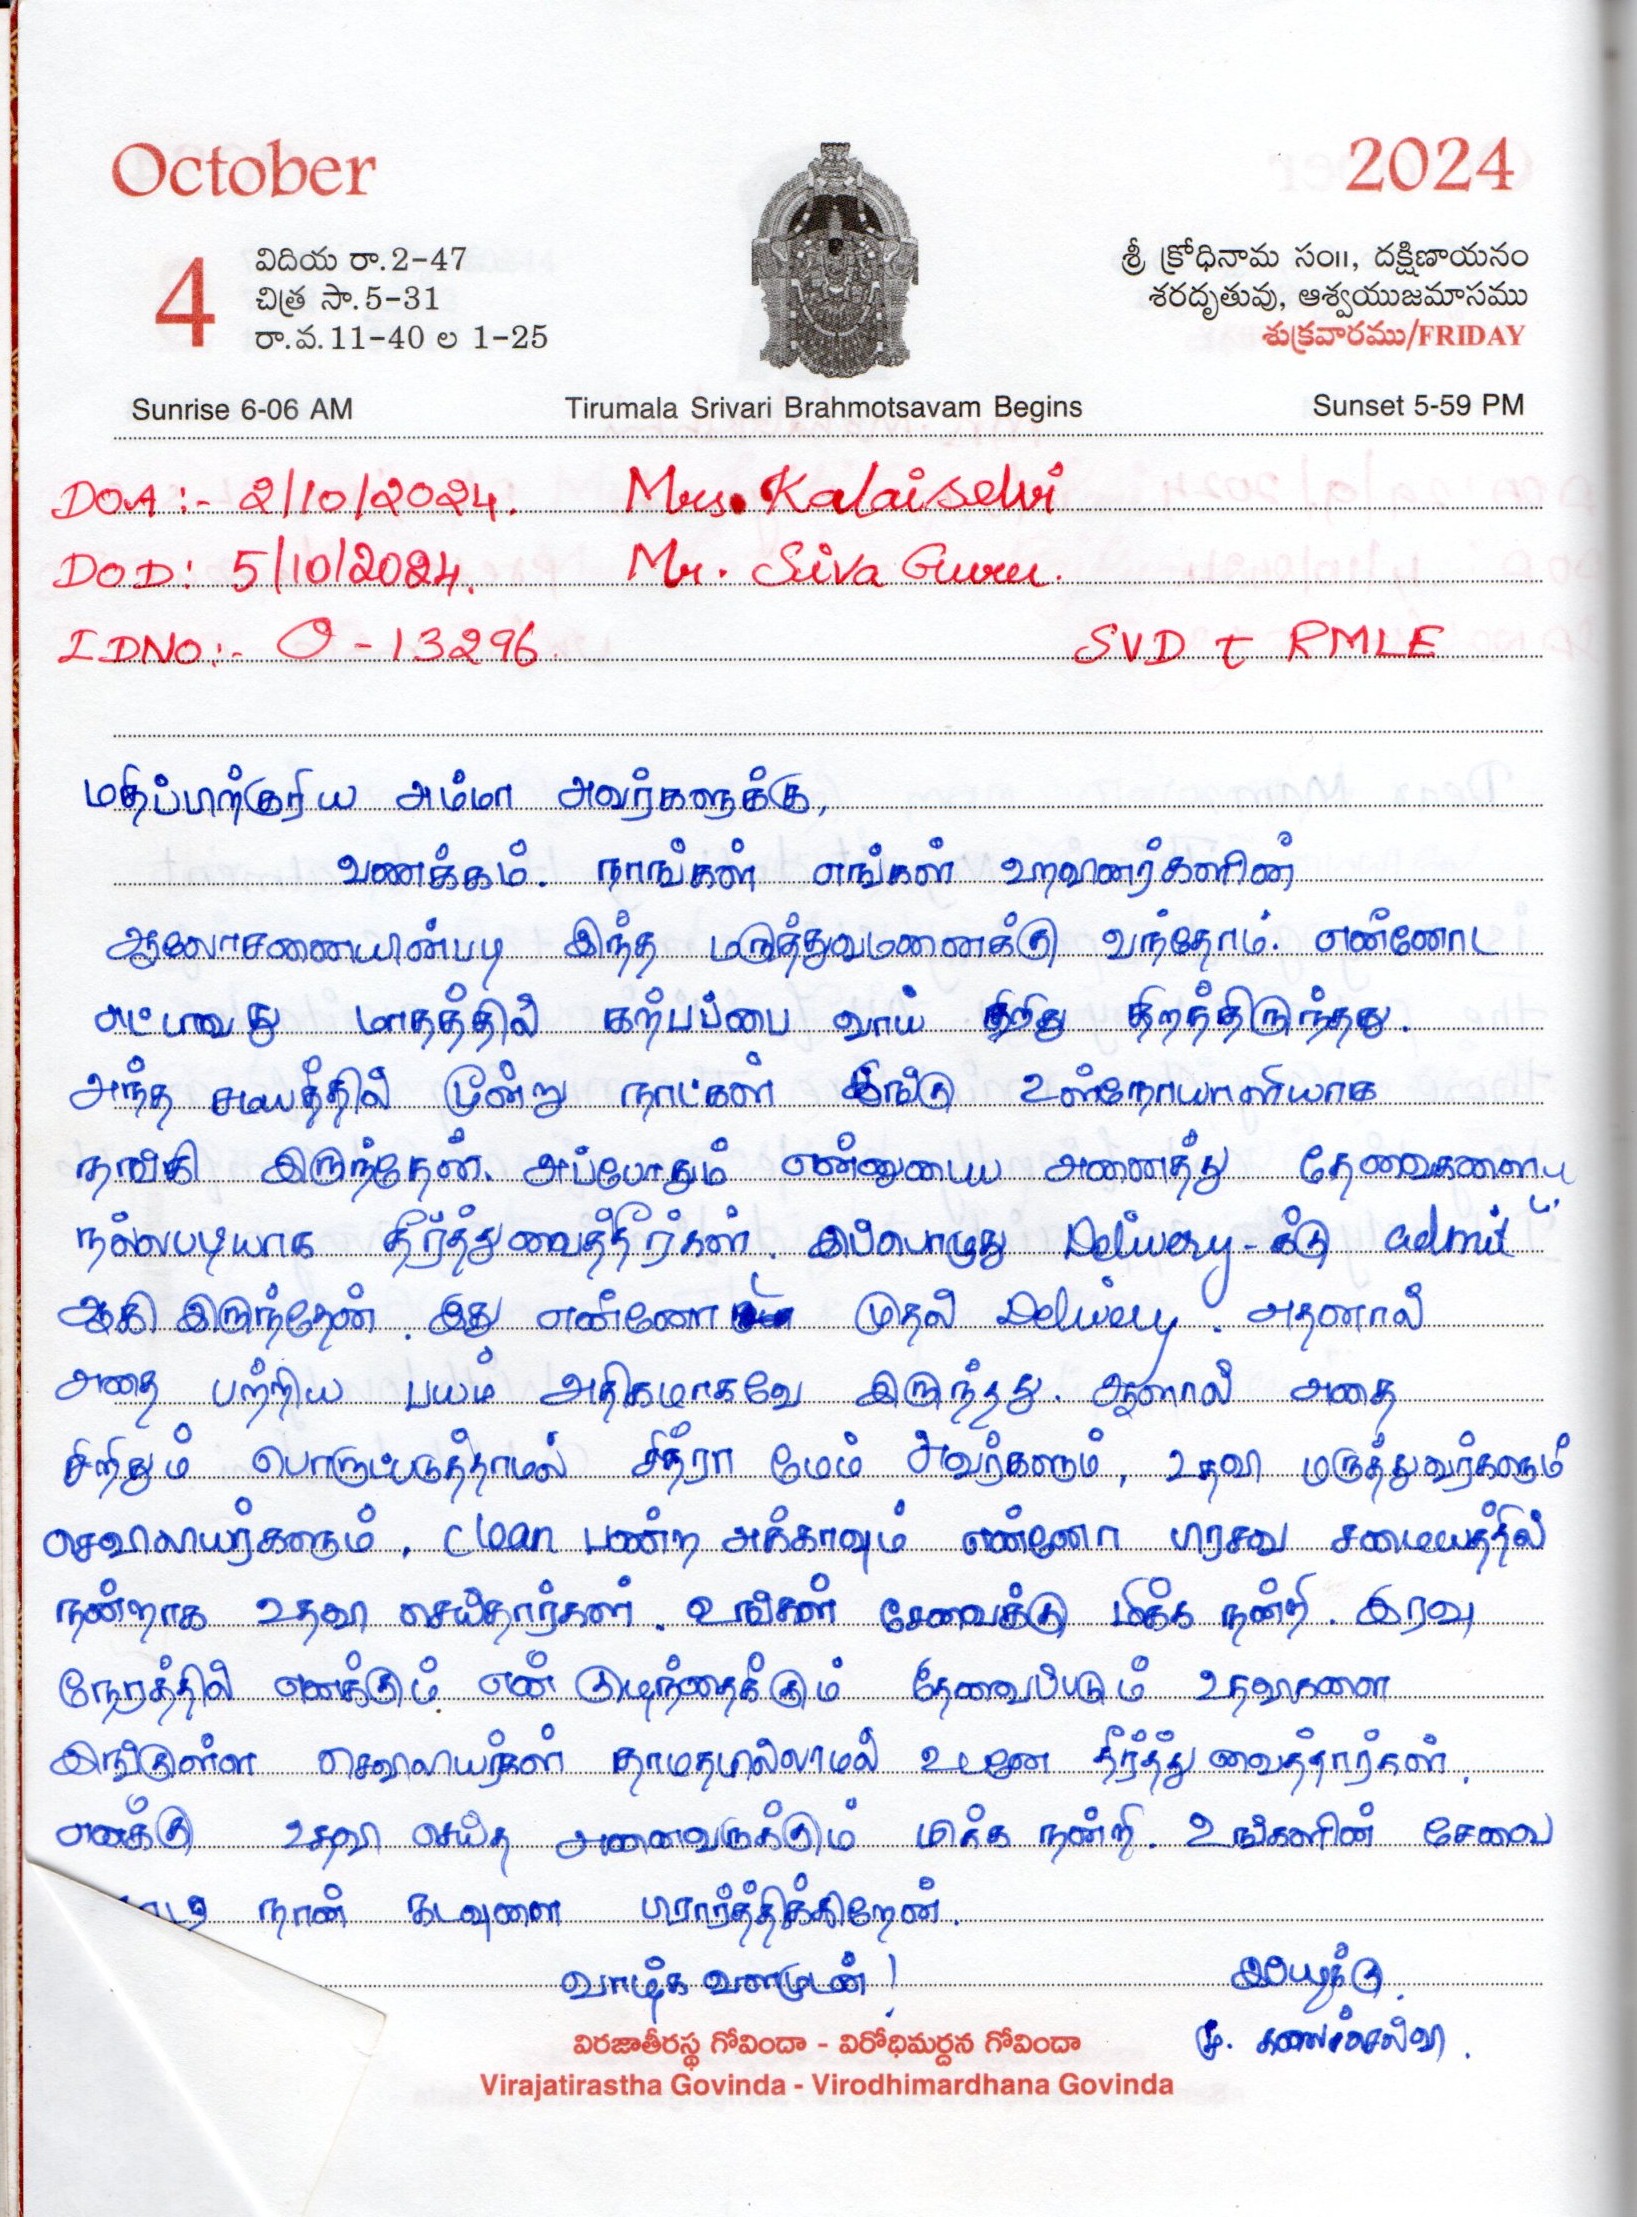 October
2024
4
విదియ రా.2-47
చిత్ర సా.5-31
రా.వ.11-40 ల 1-25
శ్రీ క్రోధినామ సం॥, దక్షిణాయనం
శరదృతువు, ఆశ్వయుజమాసము
శుక్రవారము/FRIDAY
Sunrise 6-06 AM
Tirumala Srivari Brahmotsavam Begins
Sunset 5-59 PM
DOA :- 2/10/2024. Mrs. Kalaiselvi
DOD: 5/10/2024. Mr. Siva Guru.
IDNO:- O-13296 SVD RMLE
மதிப்பிற்குரிய அம்மா அவர்களுக்கு,
வணக்கம். நாங்கள் எங்கள் உறவினர்களின்
ஆலோசணையின்படி இந்த மருத்துவமணைக்கு வந்தோம். எண்ணோட
எட்டாவது மாதத்தில் கற்பப்பை வாய் சிறிது திறந்திருந்தது.
அந்த சமயத்தில் மூன்று நாட்கள் இங்கு உள்நோயாளியாக
தங்கி இருந்தேன். அப்போதும் என்னுடைய அணைத்து தேவைகளையு
நல்லபடியாக தீர்த்துவைத்தீர்கள். இப்பொழுது Delivery-க்கு admit
ஆகி இருந்தேன். இது எண்ணோ முதல் Delivery. அதனால்
அதை பற்றிய பயம் அதிகமாகவே இருந்தது. ஆனால் அதை
சிறிதும் பொருட்படுத்தாமல் சித்ரா மேம் அவர்களும், உதவி மருத்துவர்களும்
செவிலியர்களும், Clean பண்ற அக்காவும் எண்ணோ பிரசவ சமையத்தில்
நன்றாக உதவி செய்தார்கள். உங்கள் சேவைக்கு மிக்க நன்றி. இரவு
நேரத்தில் எனக்கும் என் குழந்தைக்கும் தேவைப்படும் உதவிகளை
இங்குள்ள செவிலியர்கள் தாமதமில்லாமல் உடனே தீர்த்து வைத்தார்கள்.
எனக்கு உதவி செய்த அனைவருக்கும் மிக்க நன்றி. உங்களின் சேவை
நான் கடவுளை பிரார்த்திக்கிறேன்.
வாழ்க வளமுடன்! இப்படிக்கு
சி. கலைச்செல்வி.
విరజాతీరస్థ గోవిందా - విరోధిమర్దన గోవిందా
Virajatirastha Govinda - Virodhimardhana Govinda